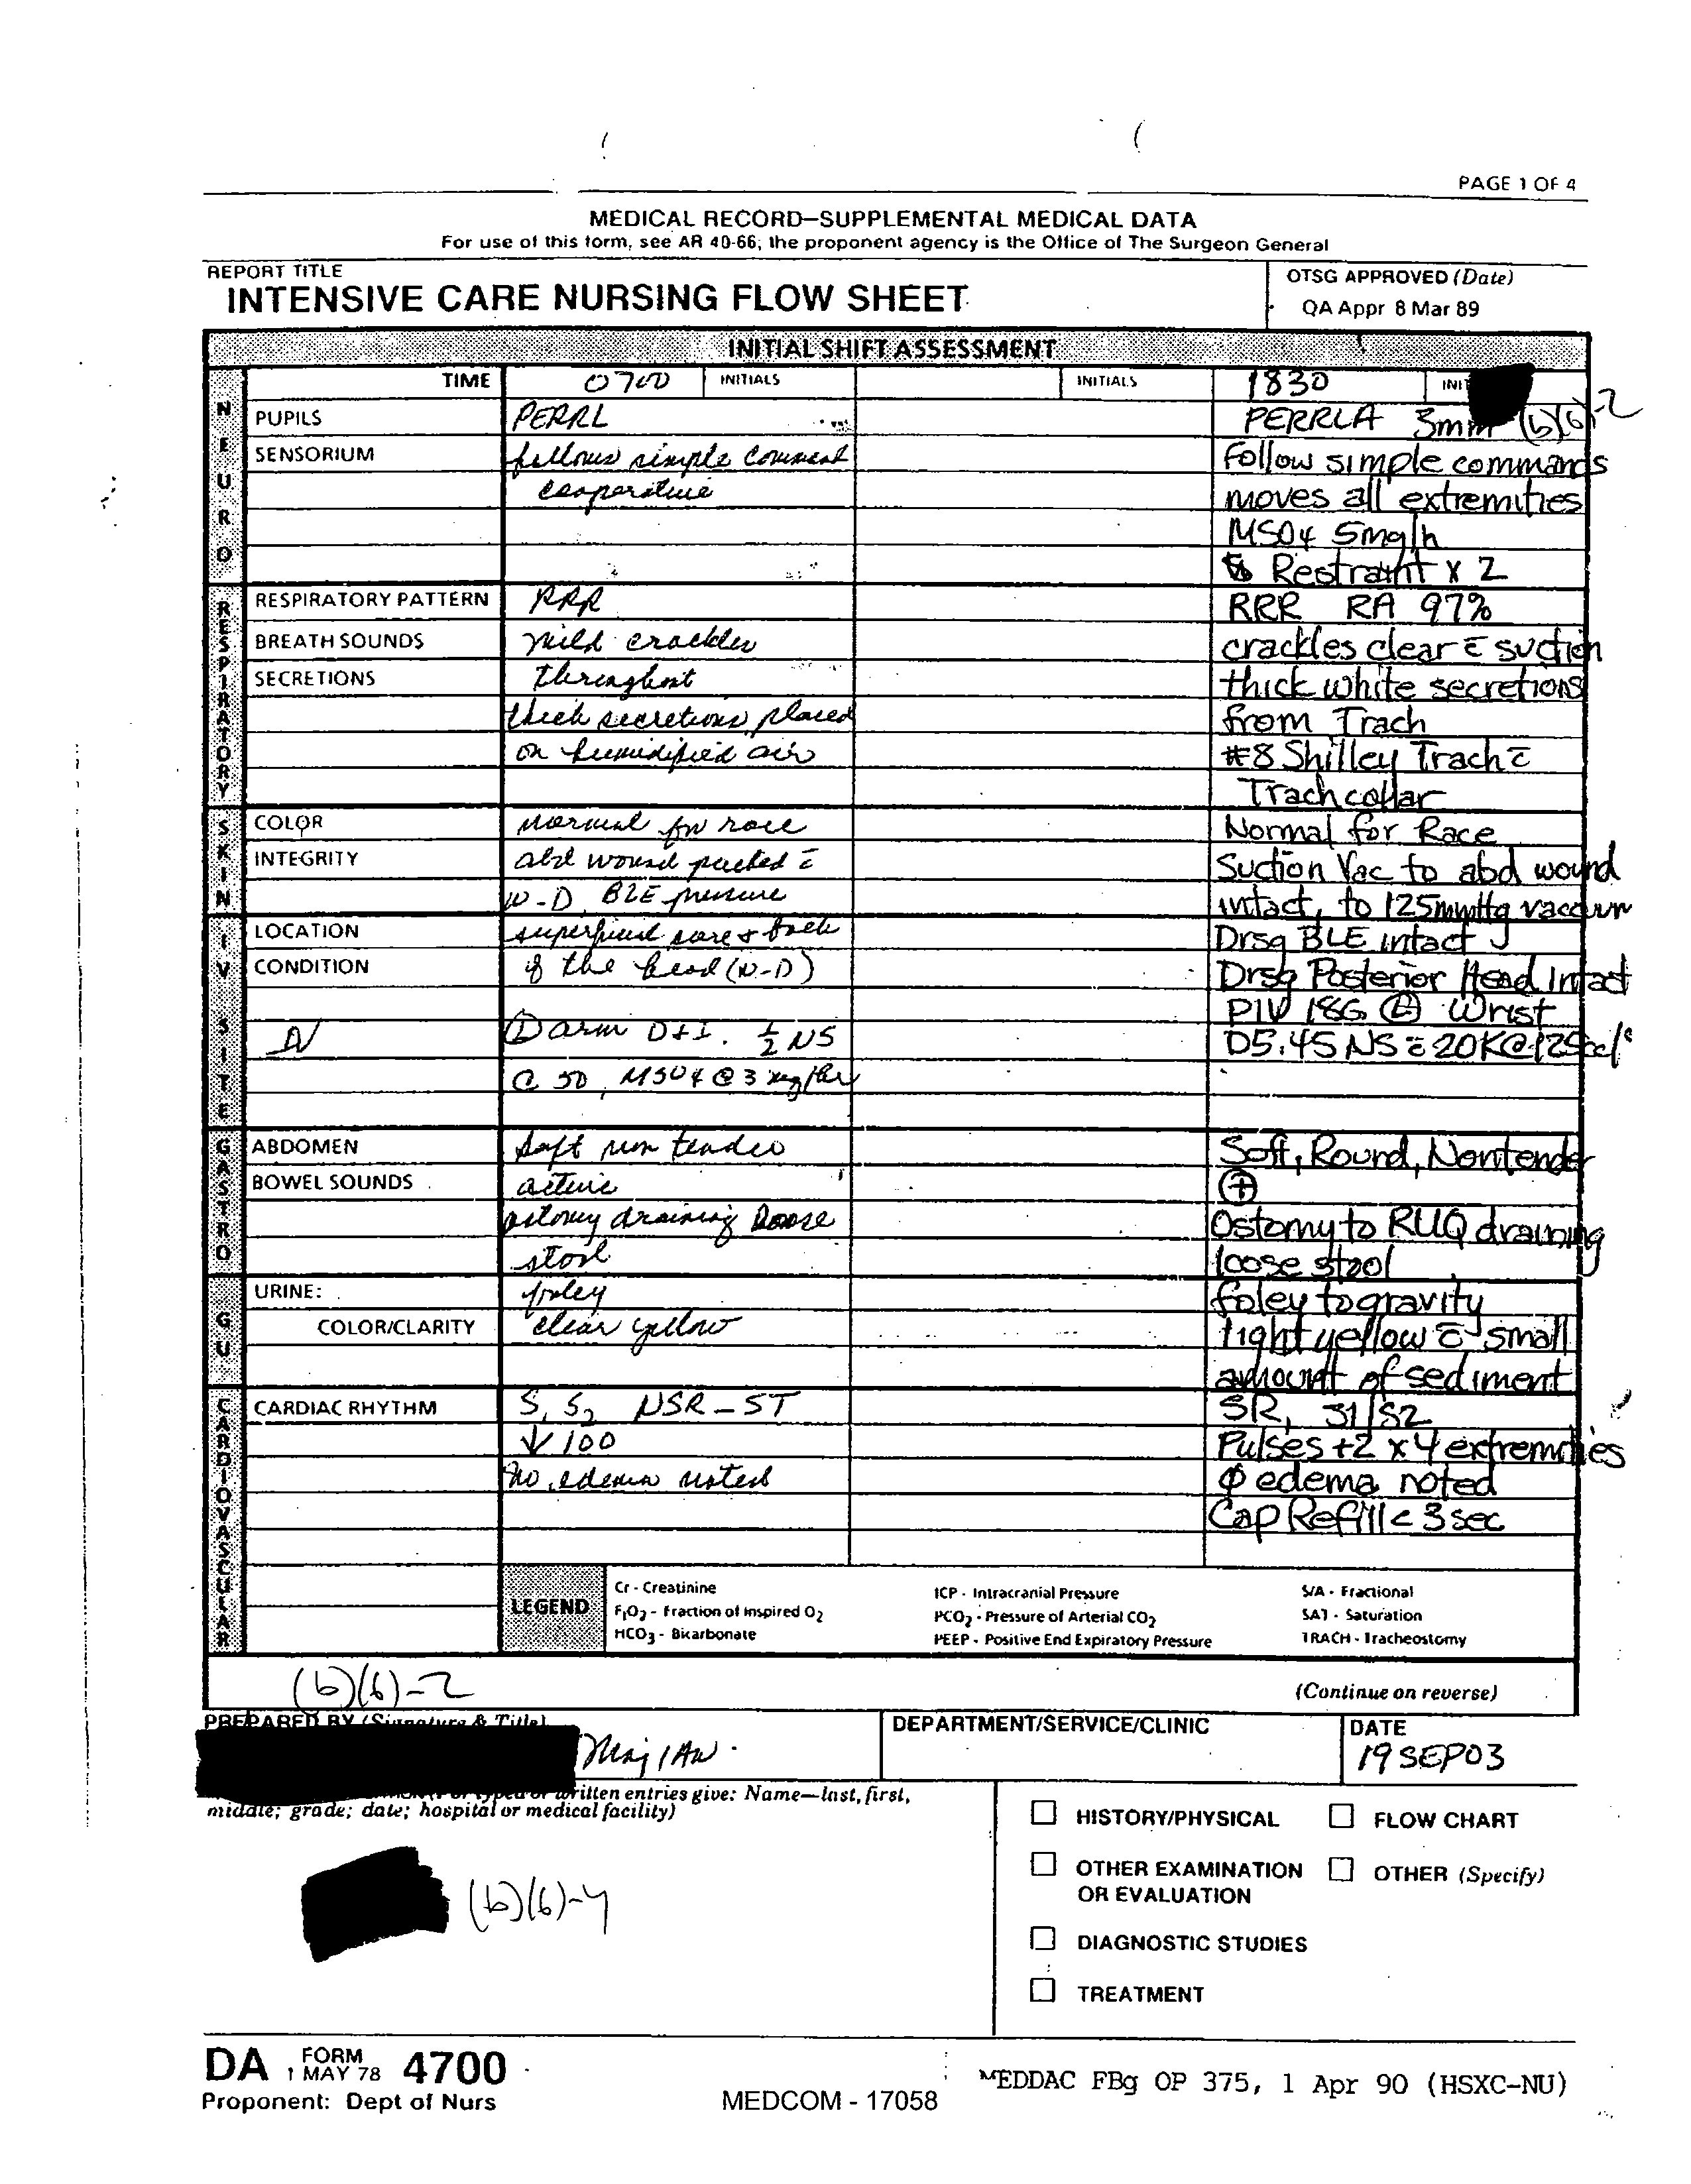 PAGE 1 OF 4
MEDICAL RECORD—SUPPLEMENTAL MEDICAL DATA
For use of this form, see AR 40-66; the proponent agency is the Office of The Surgeon General
REPORT TITLE
INTENSIVE CARE NURSING FLOW SHEET
OTSG APPROVED (Date)
QA Appr 8 Mar 89
INITIAL SHIFT ASSESSMENT
TIME 0700 INITIALS INITIALS 1830 INIT
NEURO
PUPILS PERRL PERRLA 3mm (b)(6)-2
SENSORIUM follows simple command Follow simple commands
cooperative moves all extremities
MSO4 5mg/h
Restraint x 2
RESPIRATORY
RESPIRATORY PATTERN RRR RRR RA 97%
BREATH SOUNDS mild crackles crackles clear c̄ suction
SECRETIONS throughout thick white secretions
thick secretions placed from Trach
on humidified air #8 Shilley Trach c̄
Trach collar
SKIN
COLOR normal for race Normal for Race
INTEGRITY abd wound packed c̄ Suction Vac to abd wound
W-D, BLE pressure intact, to 125mmHg vaccum
IV SITE
LOCATION superficial sore + back Drsg BLE intact
CONDITION of the head (W-D) Drsg Posterior Head Intact
PIV 18G Ⓛ Wrist
IV Ⓛ arm D+I. ½ NS D5.45 NS c̄ 20K@125cc/°
@ 50, MSO4 @ 3 mg/hr
GASTRO
ABDOMEN Soft non tender Soft, Round, Nontender
BOWEL SOUNDS active ⊕
ostomy draining loose Ostomy to RUQ draining
stool loose stool
GU
URINE: foley foley to gravity
COLOR/CLARITY clear yellow light yellow c̄ small
amount of sediment
CARDIOVASCULAR
CARDIAC RHYTHM S1 S2 NSR - ST SR, S1/S2
↓ 100 Pulses +2 x 4 extremities
No edema noted ϕ edema noted
Cap Refill < 3 sec
LEGEND
Cr - Creatinine ICP - Intracranial Pressure S/A - Fractional
FIO2 - Fraction of Inspired O2 PCO2 - Pressure of Arterial CO2 SAT - Saturation
HCO3 - Bicarbonate PEEP - Positive End Expiratory Pressure TRACH - Tracheostomy
(b)(6)-2
(Continue on reverse)
PREPARED BY (Signature & Title) DEPARTMENT/SERVICE/CLINIC DATE
Maj / AN 19 SEP 03
written entries give: Name—last, first,
middle; grade; date; hospital or medical facility)
(b)(6)-4
HISTORY/PHYSICAL FLOW CHART
OTHER EXAMINATION OTHER (Specify)
OR EVALUATION
DIAGNOSTIC STUDIES
TREATMENT
DA FORM 4700
1 MAY 78
Proponent: Dept of Nurs
MEDCOM - 17058
MEDDAC FBg OP 375, 1 Apr 90 (HSXC-NU)